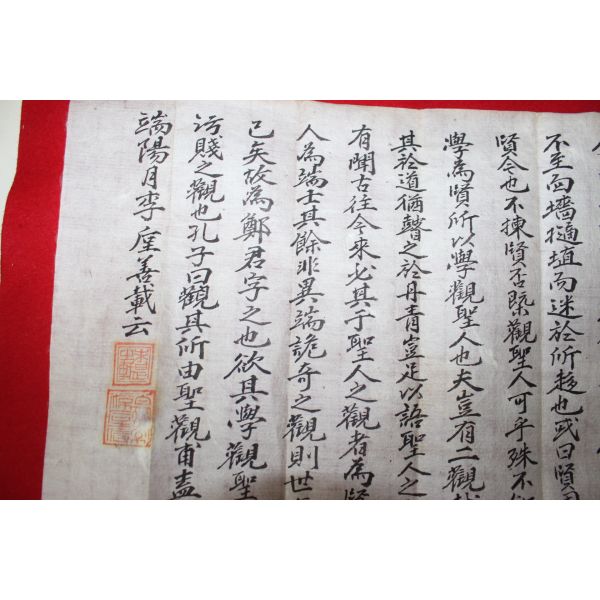 不至面墻擿埴而迷於所趍也或曰賢
賢令也不揀賢否槩觀聖人可乎殊不
學為賢所以學觀聖人也夫豈有二觀
其於道猶瞽之於丹青豈足以語聖人之
有開古往今來必其于聖人之觀者為
人為端士其餘非異端詭奇之觀則世
已矣故為鄭君字之也欲其學觀聖
污賤之觀也孔子曰觀其所由聖觀甫盍
端陽月李座善載云